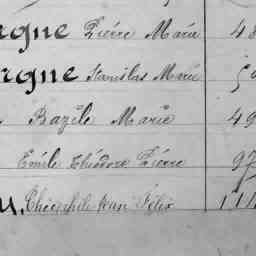 rgne Pierre Marie 48
rgne Stanislas Marie 59
Bazile Marie 49
Emile Théodore Pierre 97
Théophile Jean Félix 111